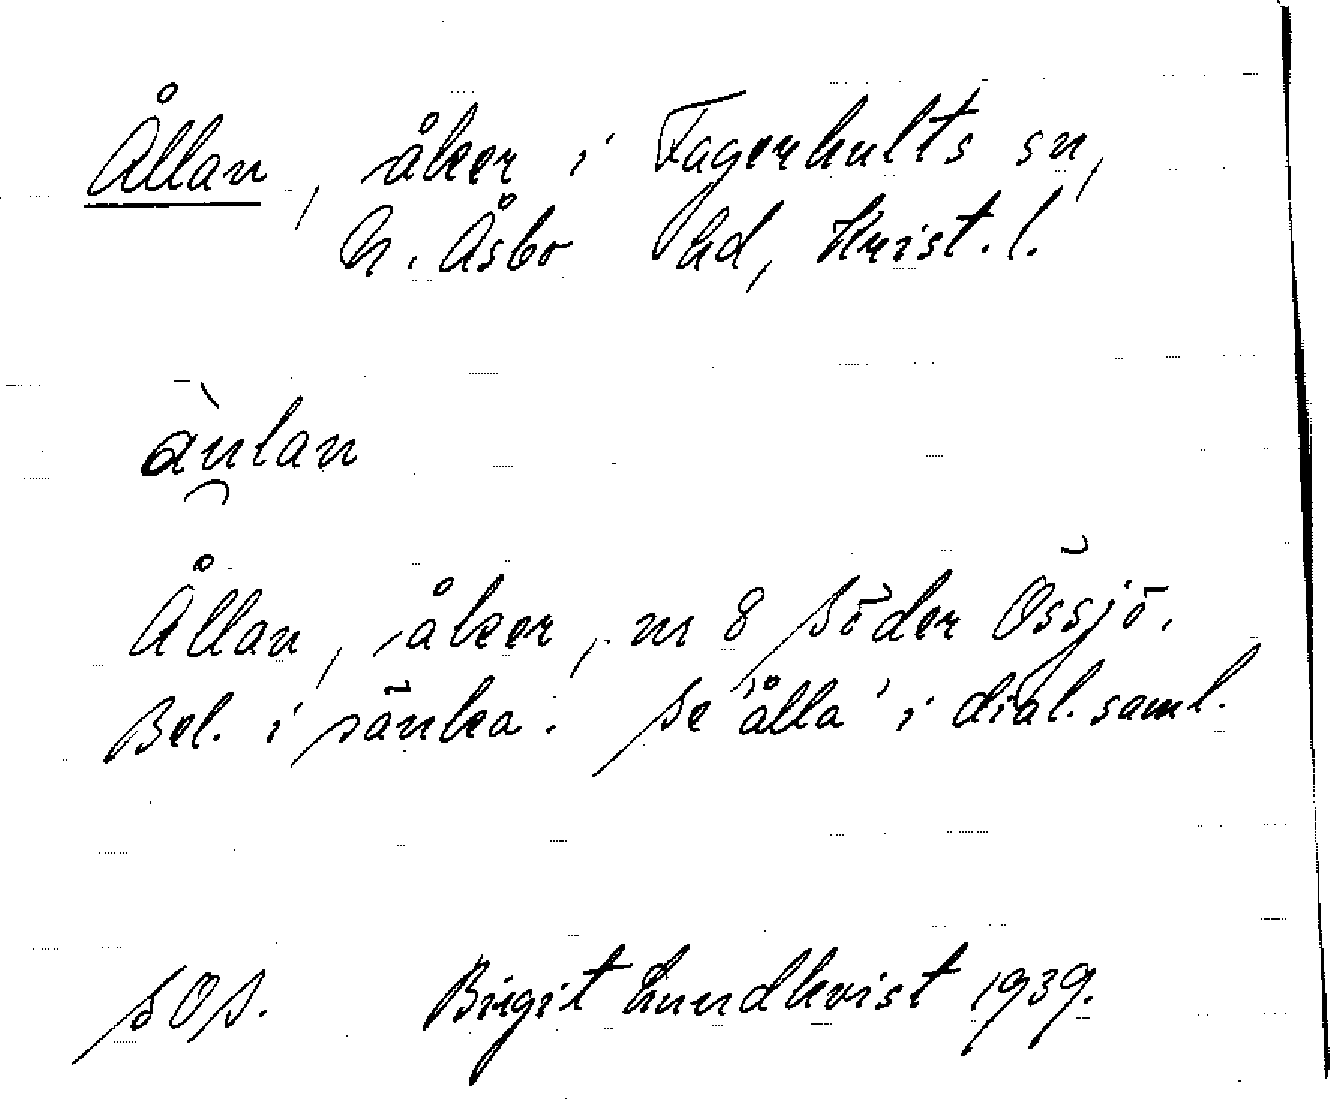 Ållan, åker i Fagerhults sn,
N. Åsbo hd, Krist. l.
àu̯lan
Ållan, åker, nr 8 Söder Össjö.
Bel. i sänka. Se 'ålla' i dial. saml.
SOS. Birgit Lundkvist 1939.